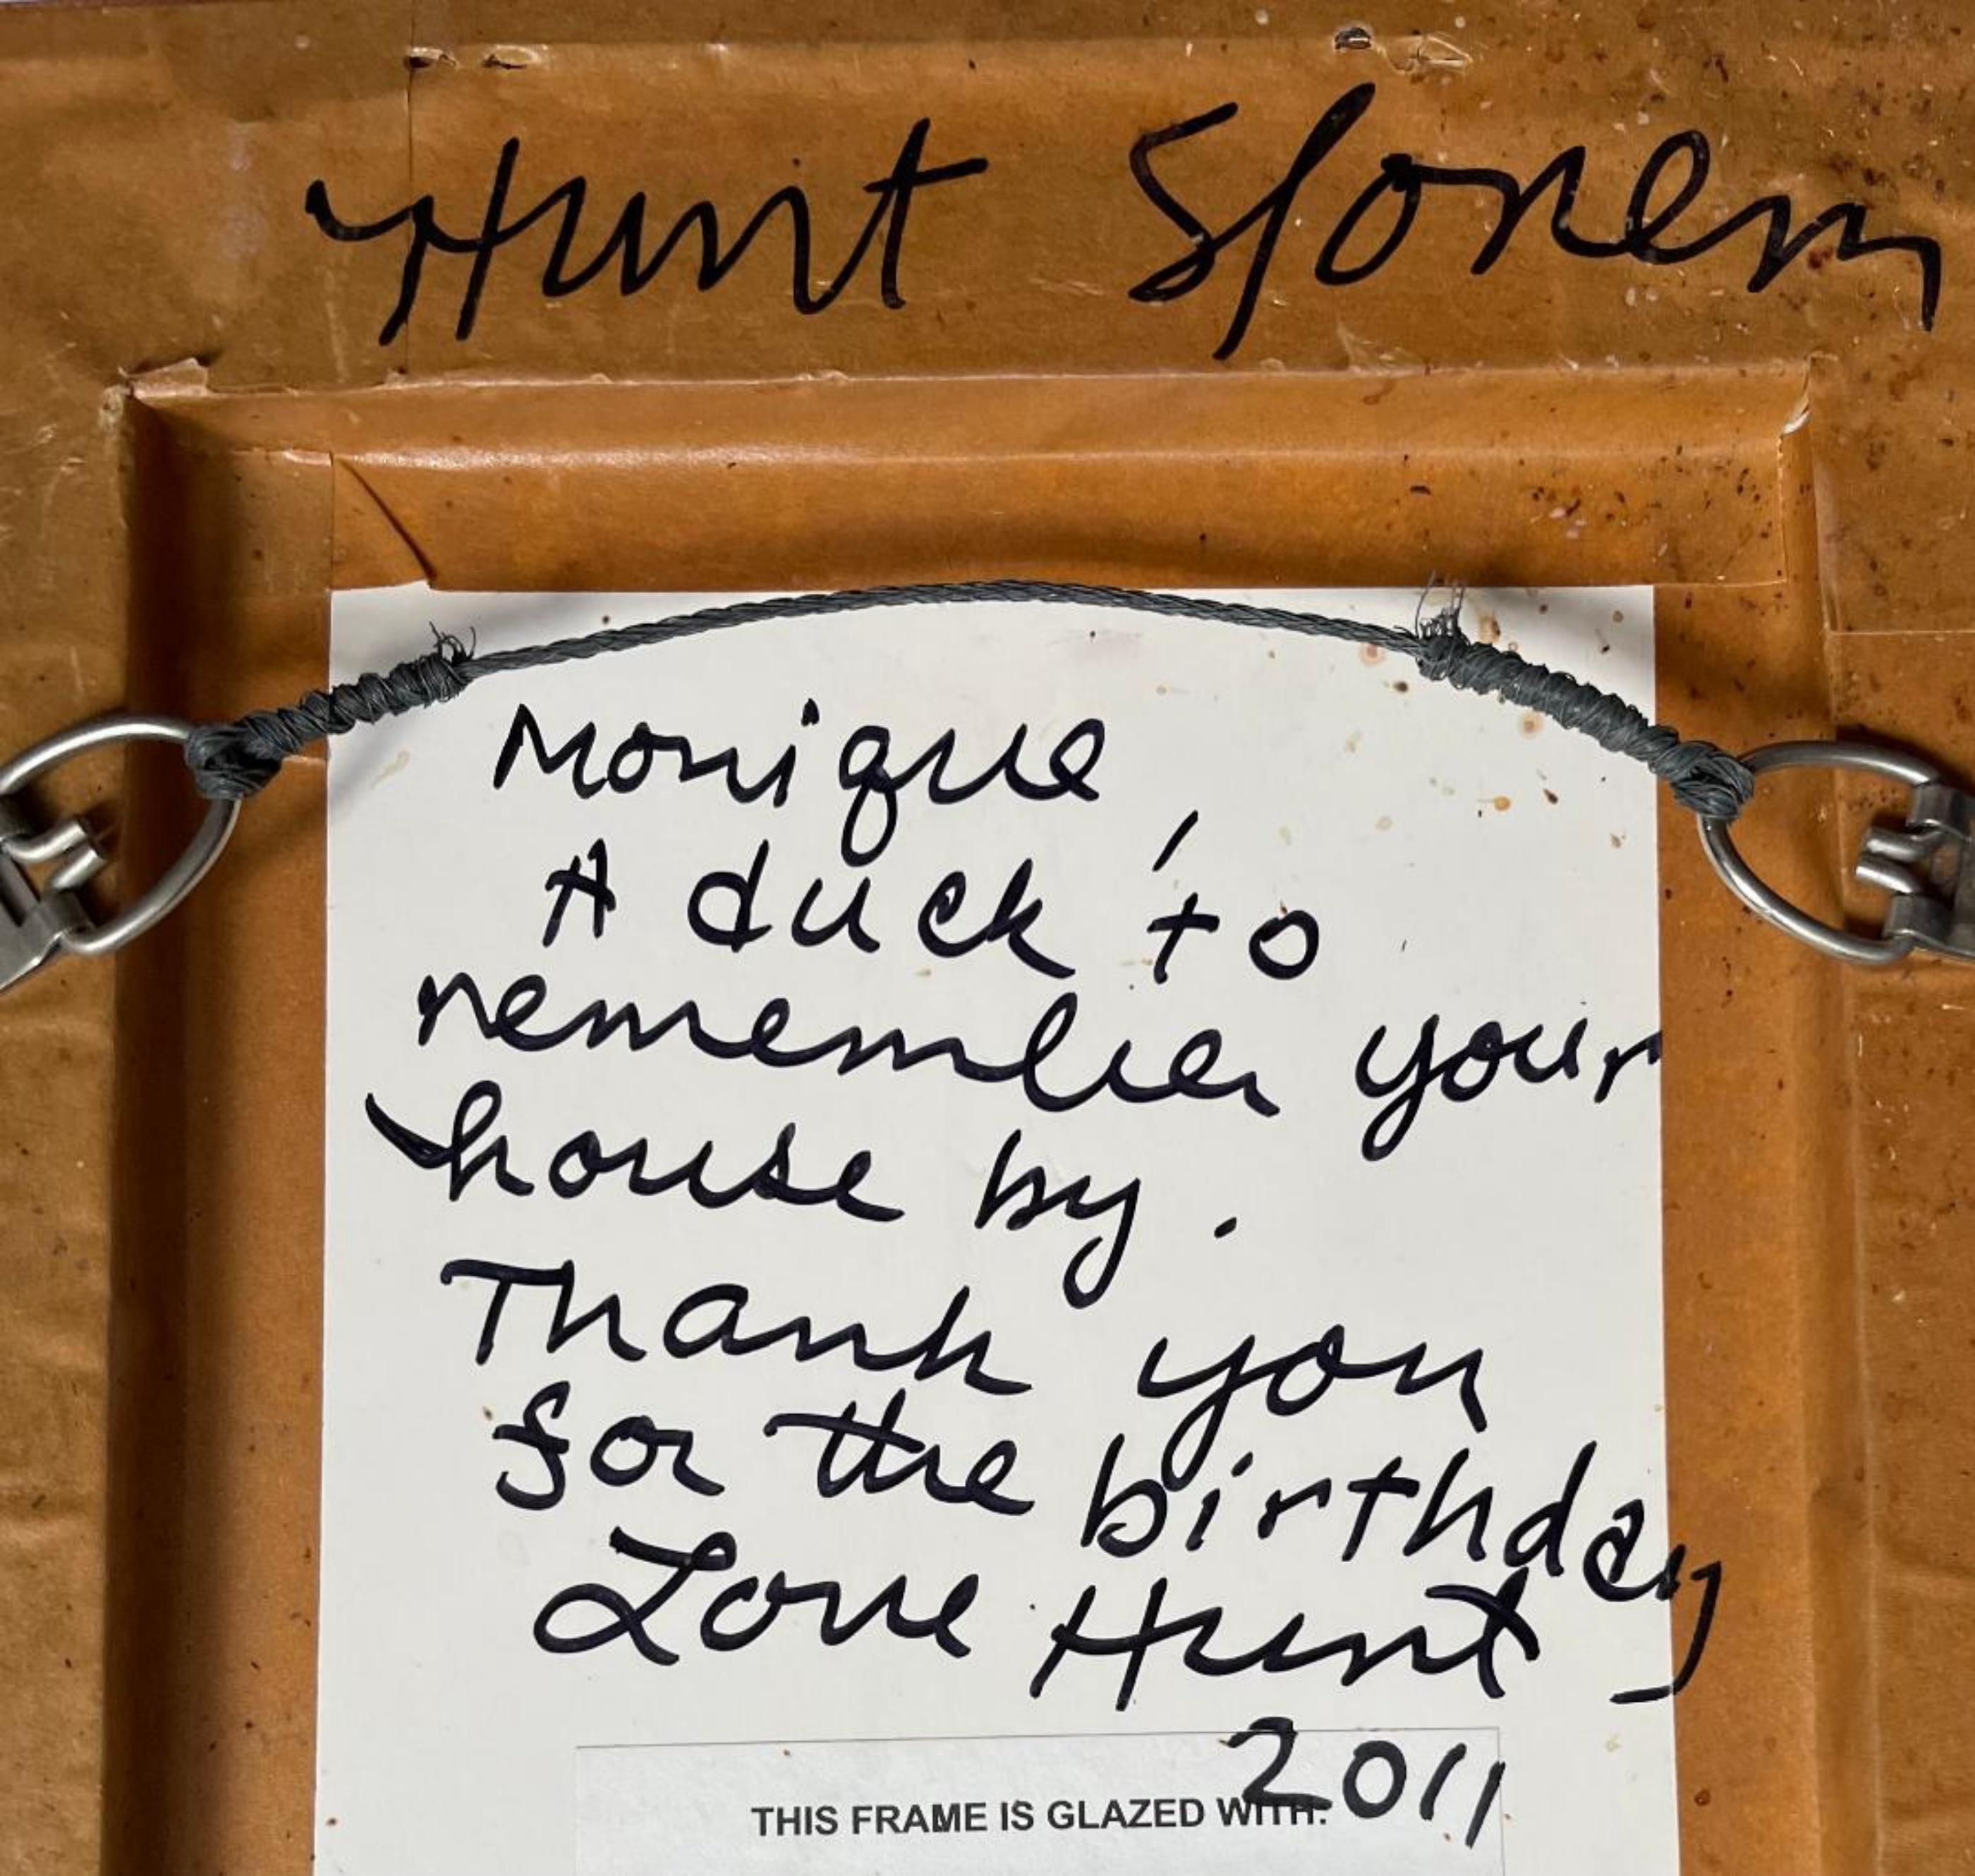 Hunt Slonem
Monique,
A duck to
remember your
house by.
Thank you
for the birthday
Love Hunt
2011
THIS FRAME IS GLAZED WITH: